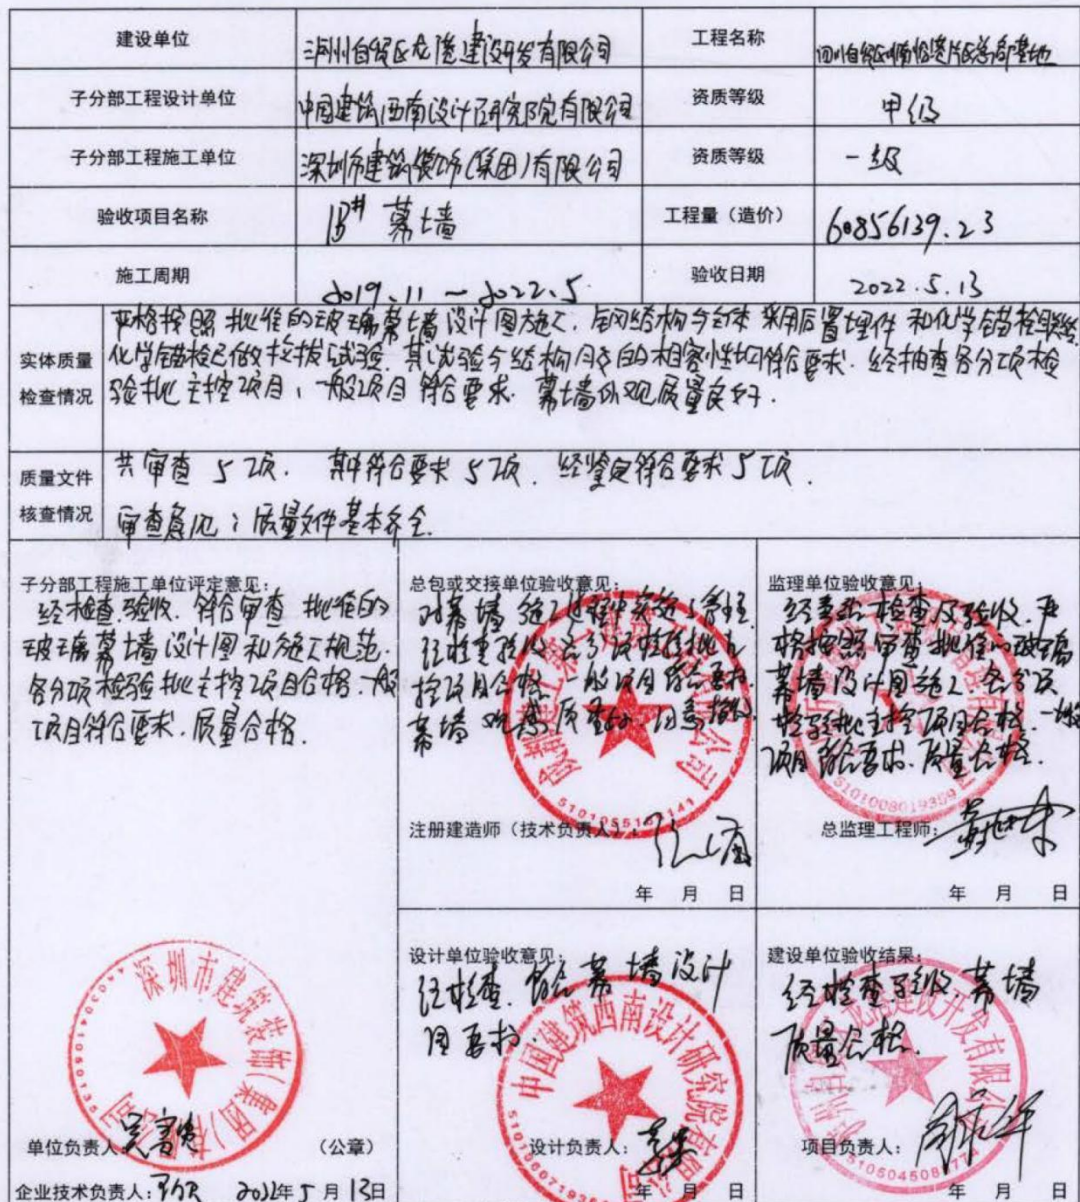 建设单位 泸州自贸区龙港建设开发有限公司 工程名称
子分部工程设计单位 中国建筑西南设计研究院有限公司 资质等级 甲级
子分部工程施工单位 深圳市建筑装饰(集团)有限公司 资质等级 一级
验收项目名称 幕墙 工程量（造价） 60856139.23
施工周期 2019.11 — 2022.5 验收日期 2022.5.13
实体质量
检查情况
严格按照批准的玻璃幕墙设计图施工,
采用后置埋件和化学锚栓
化学锚栓已做拉拔试验.其试验与结构胶的相容性均符合要求.经抽查各分项检
验批主控项目,一般项目符合要求.幕墙外观质量良好.
质量文件
核查情况
共审查5项. 其中符合要求5项. 经鉴定符合要求5项.
审查意见:质量文件基本齐全.
子分部工程施工单位评定意见：
经检查验收.符合审查批准的
玻璃幕墙设计图和施工规范.
各分项检验批主控项目合格.一般
项目符合要求.质量合格.
深圳市建筑装饰(集团)有限公司
单位负责人： （公章）
企业技术负责人： 2022年5月13日
总包或交接单位验收意见：
对幕墙施工过程中
经检查验收,各分项检验批主
控项目合格,一般项目符合要求.
幕墙观感质量好.
注册建造师（技术负责人）：
年 月 日
监理单位验收意见：
检查及验收.严
格按照审查批准的玻璃
幕墙设计图施工.各分项
检验批主控项目合格.一般
项目符合要求.质量合格.
5101008019359
总监理工程师：
年 月 日
设计单位验收意见：
经检查.符合幕墙设计
图要求.
中国建筑西南设计研究院有限公司
设计负责人：
年 月 日
建设单位验收结果：
经检查验收幕墙
质量合格.
项目负责人：
年 月 日